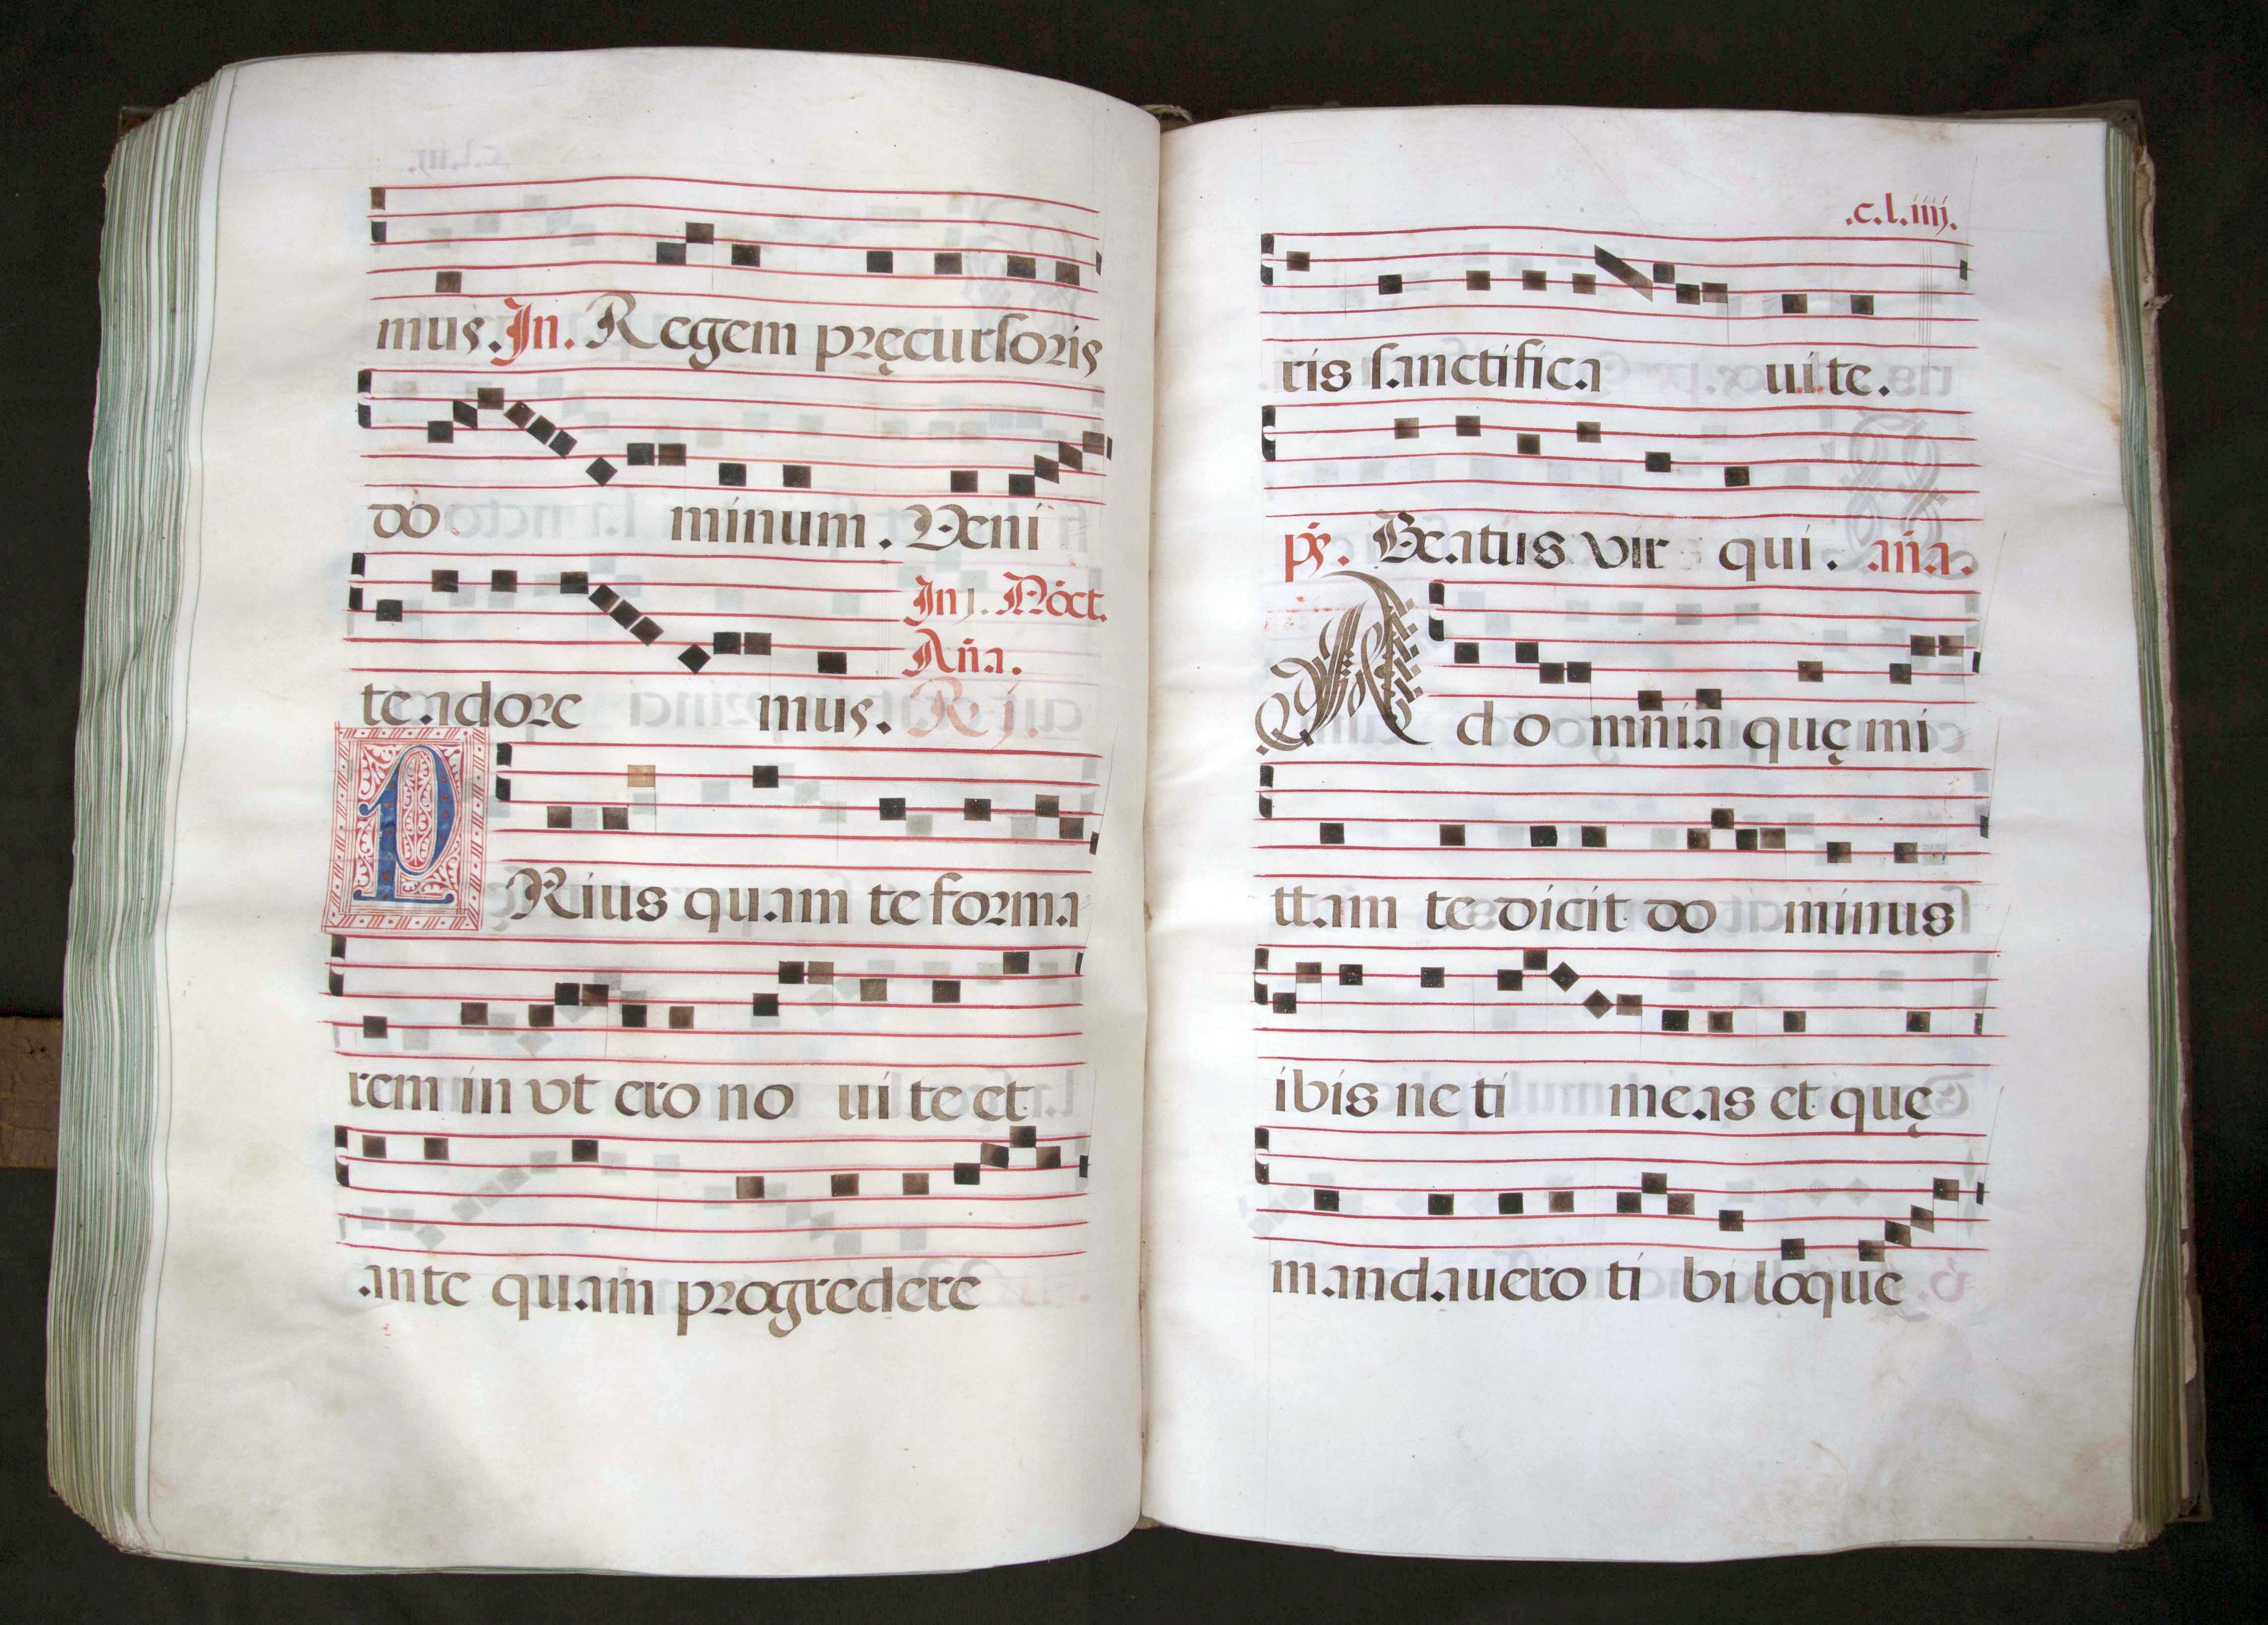 mus. In. Regem pręcursoris
do minum. Veni
te adore mus.
In j. Noct.
Aña.
R j.
PRius quam te forma
rem in vt ero no ui te et
ante quam progredere
.c.l.iiij.
ris sanctifica ui te.
ps. Beatus vir qui. aña.
Ad omnia quę mi
ttam te dicit do minus
ibis ne ti meas et quę
mandauero ti bi loque